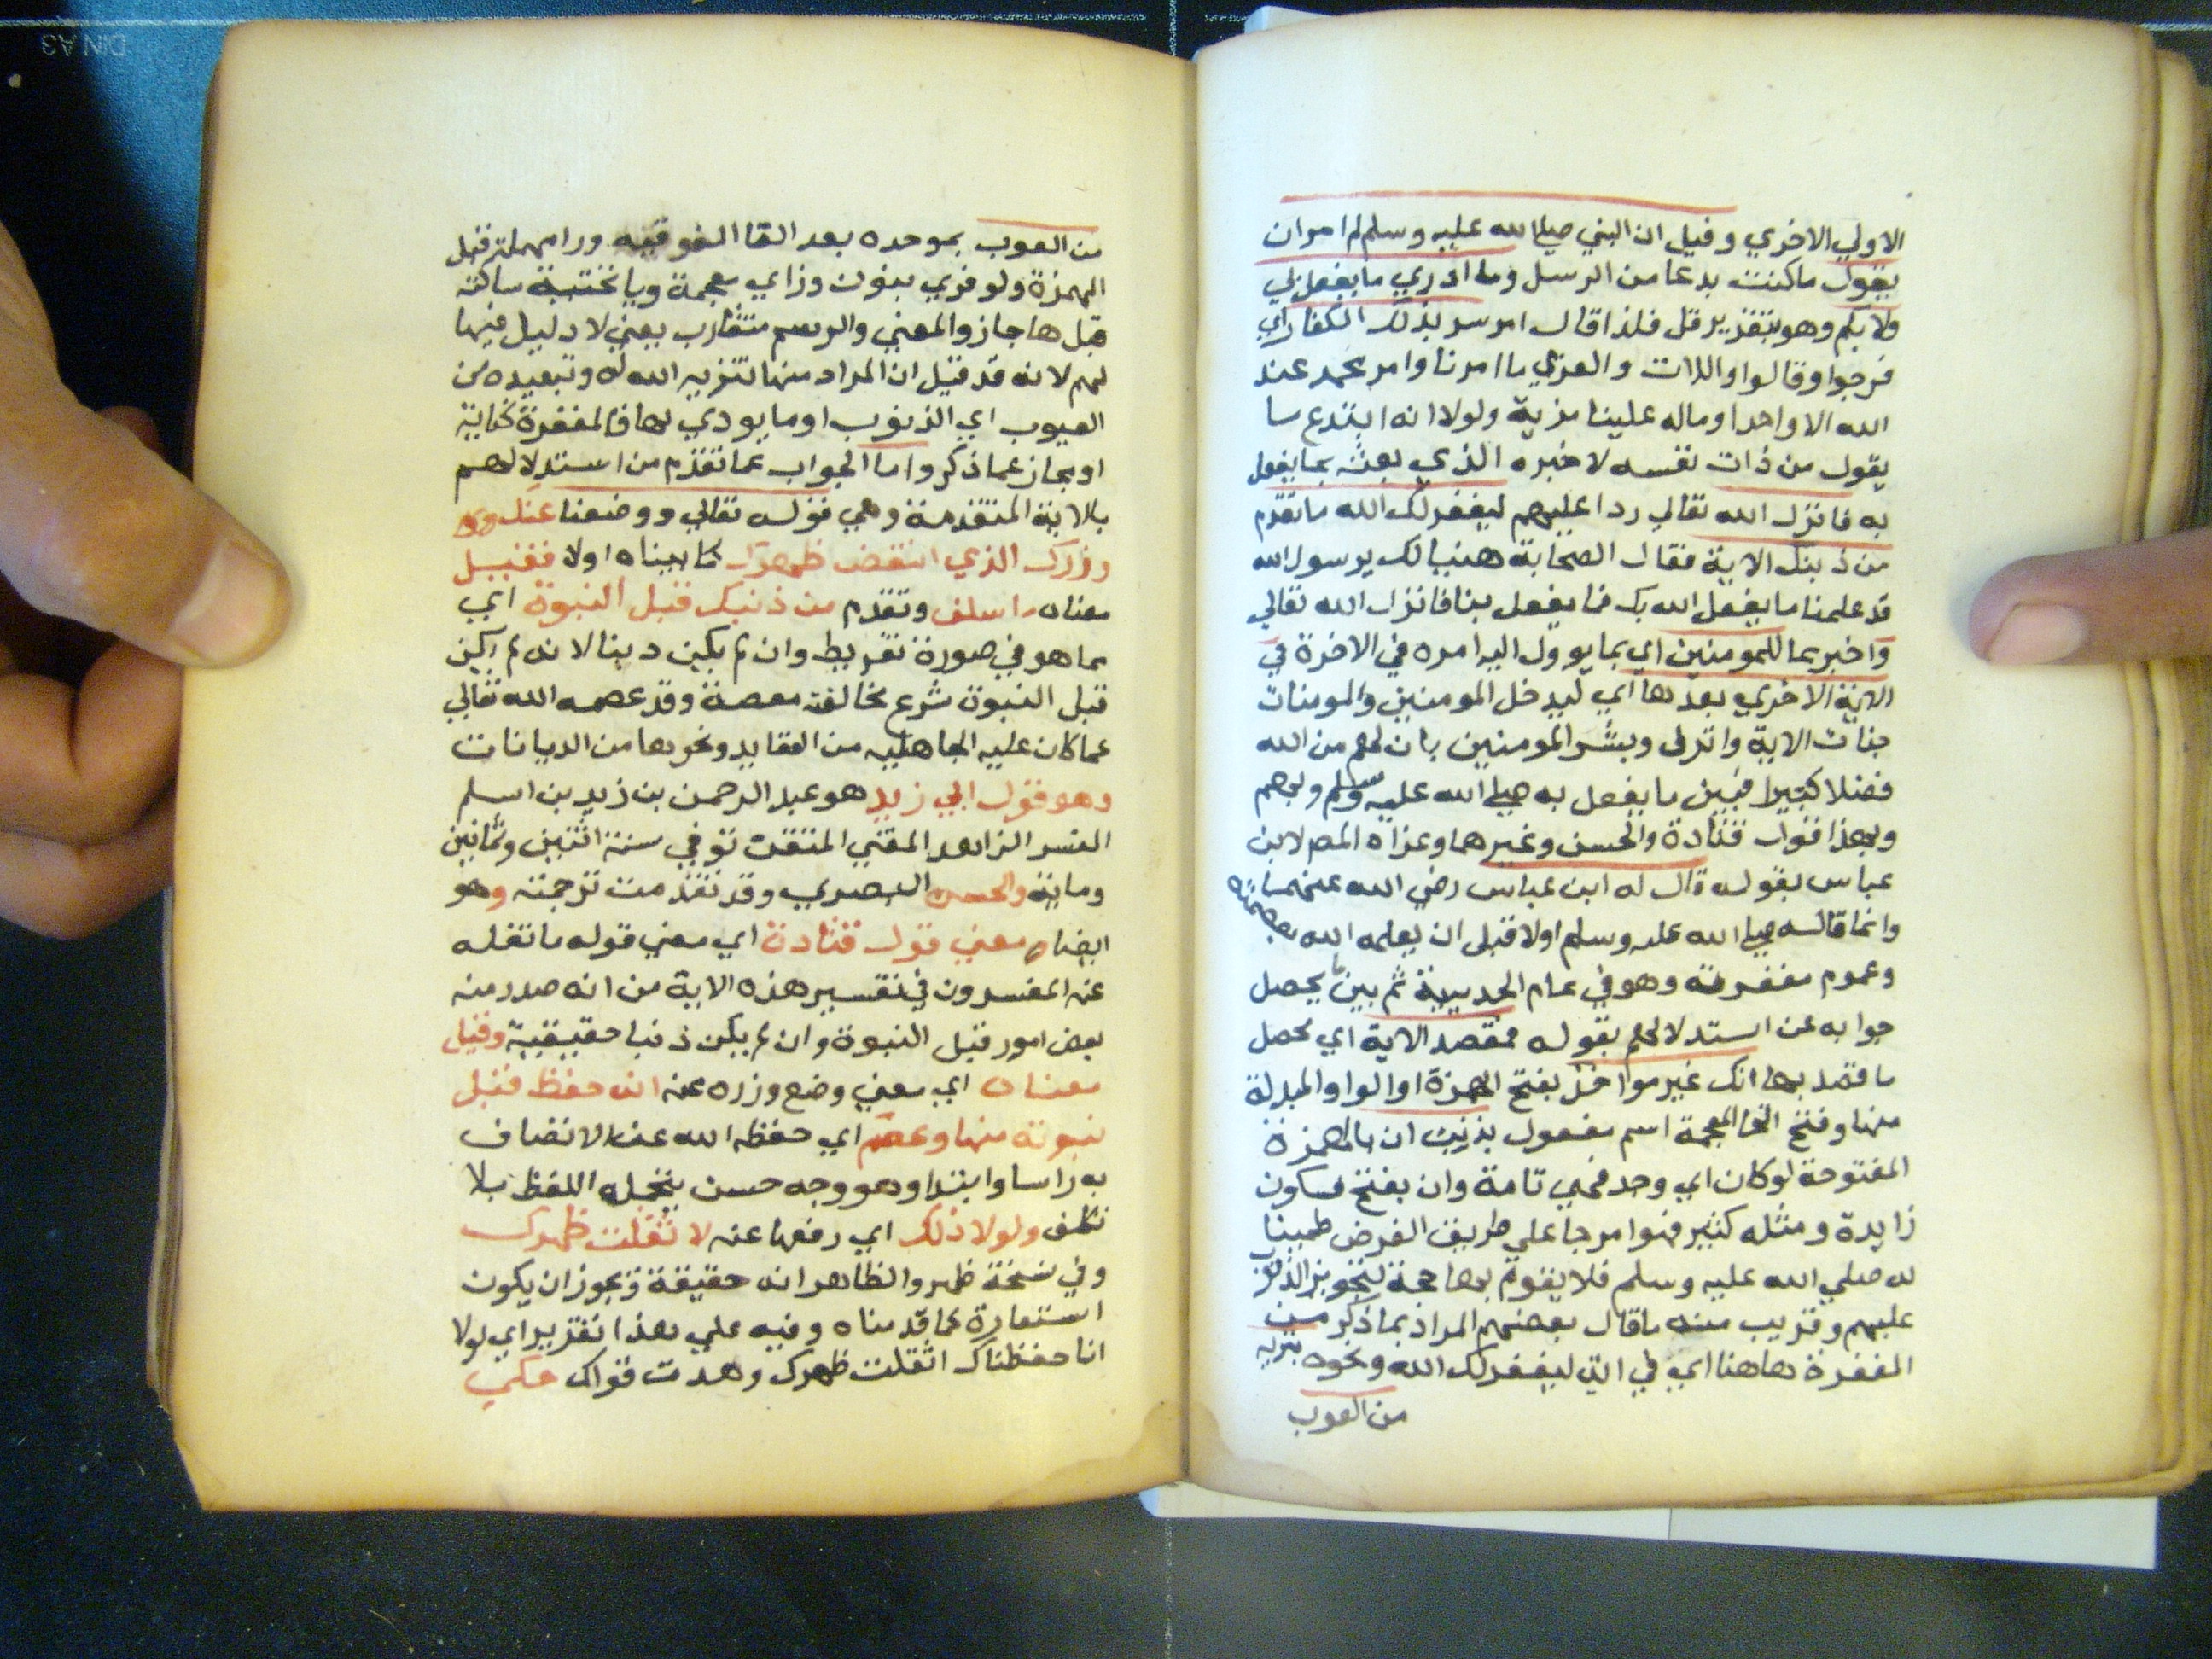 الاولي الاخري وقيل ان النبي صلي الله عليه وسلم لما امر ان
يقول ما كنت بدعا من الرسل وما ادري ما يفعل بي
ولا بكم وهو بتقدير قل فلذا قال امر سر بذلك الكفار اي
فرحوا وقالوا واللات والعزي ما امرنا وامر محمد عند
الله الا واحدا وماله علينا مزية ولولا انه ابتدع ما
يقول من ذات نفسه لاخبره الذي بعثه بما يفعل
به فانزل الله تعالي ردا عليهم ليغفر لك الله ما تقدم
من ذنبك الاية فقال الصحابة هنيا لك يرسول الله
قد علمنا ما يفعل الله بك فما يفعل بنا فانزل الله تعالي
واخبر بما للمومنين اي بما يوول اليه امره في الاخرة في
الاية الاخري بعدها اي ليدخل المومنين والمومنات
جنات الاية وانزل وبشر المومنين بان لهم من الله
فضلا كبيرا فبين ما يفعل به صلي الله عليه وسلم وبهم
وبهذا قول قتادة والحسن وغيرهما وعزاه المص لابن
عباس بقوله قال له ابن عباس رضي الله عنهما
وانما قاله صلي الله عليه وسلم اولا قبل ان يعلمه الله بعصمته
وعموم مغفرته وهو في عام الحديبية ثم بين ما يحصل
جوابه عن استدلالهم بقوله فمقصد الاية اي محصل
ما قصد بها انك غير مواخذ بفتح الهمزة او الواو المبدلة
منها وفتح الخا المعجمة اسم مفعول بذنب ان بالهمزة
المفتوحة لو كان اي وجد فهي تامة وان بفتح فسكون
زايدة ومثله كثير فهوا مرجا علي طريق الفرض طمينا
له صلي الله عليه وسلم فلا يقوم بها حجة لتجويز الذنوب
عليهم وقريب منه ما قال بعضهم المراد بما ذكر من
المغفرة هاهنا اي في اية ليغفر لك الله ونحوه تبرية
من العيوب
من العيوب بموحده بعد القا الفوقيه ورا مهملة قبل
الهمزة ولو قري بنون وزاي معجمة ويا تحتية ساكنه
قبل ها جاز والمعني والرسم متقارب يعني لا دليل فيها
لهم لانه قد قيل ان المراد منها تنزيه الله له وتبعيده من
العيوب اي الذنوب او ما يودي لها فالمغفرة كناية
او مجاز عما ذكر واما الجواب عما تقدم من استدلالهم
بالاية المتقدمة وهي قوله تعالي ووضعنا عنك
وزرك الذي انقض ظهرك كما بيناه اولا فقيل
معناه ما سلف وتقدم من ذنبك قبل النبوة اي
مما هو في صورة تفريط وان لم يكن دينا لانه لم يكن
قبل النبوة شرع مخالفته معصة وقد عصمه الله تعالي
عما كان عليه الجاهليه من العقايد ونحوها من الديانات
وهو قول ابي زيد هو عبد الرحمن بن زيد بن اسلم
المفسر الزاهد المفتي المتقن توفي سنة اثنين وثمانين
وماية والحسن البصري وقد تقدمت ترجمته وهو
ايضا معني قول قتادة اي معني قوله ما نقله
عنه المفسرون في تفسير هذه الاية من انه صدر منه
بعض امور قبل النبوة وان لم يكن ذنبا حقيقية وقيل
معناه اي معني وضع وزره عنه انه حفظ قبل
نبوته منها وعصم اي حفظه الله عن الاتصاف
به راسا وابتدا وهو وجه حسن يتحمله اللفظ بلا
تكلف ولولا ذلك اي رفعها عنه لاثقلت ظهرك
وفي نسخة ظهر والظاهر انه حقيقة ويجوز ان يكون
استعارة كما قدمناه وفيه علي هذا تقدير اي لولا
انا حفظناك اثقلت ظهرك وهدت قواك حكي